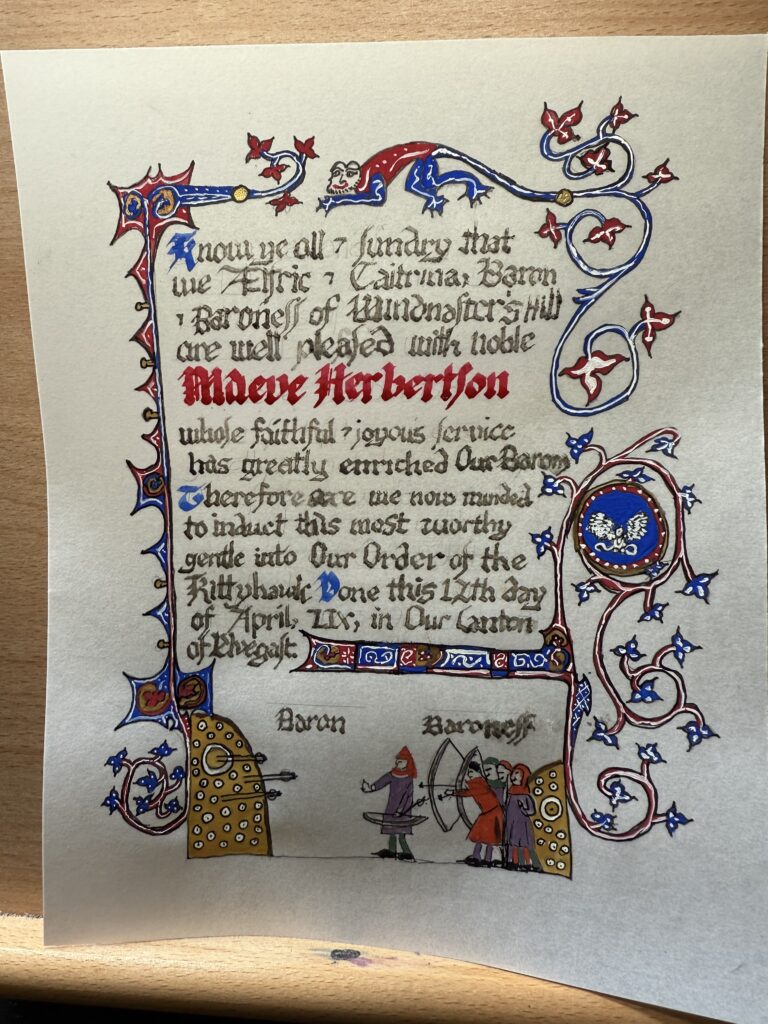 Know ye all ⁊ sundry that
we Ælfric ⁊ Caitrina, Baron
⁊ Baroness of Windmasters Hill
are well pleased with noble
Maeve Herbertson
whose faithful ⁊ joyous service
has greatly enriched Our Barony
Therefore are we now minded
to induct this most worthy
gentle into Our Order of the
Kittyhawk Done this 12th day
of April, LIX, in Our Canton
of Elvegast
Baron Baroness